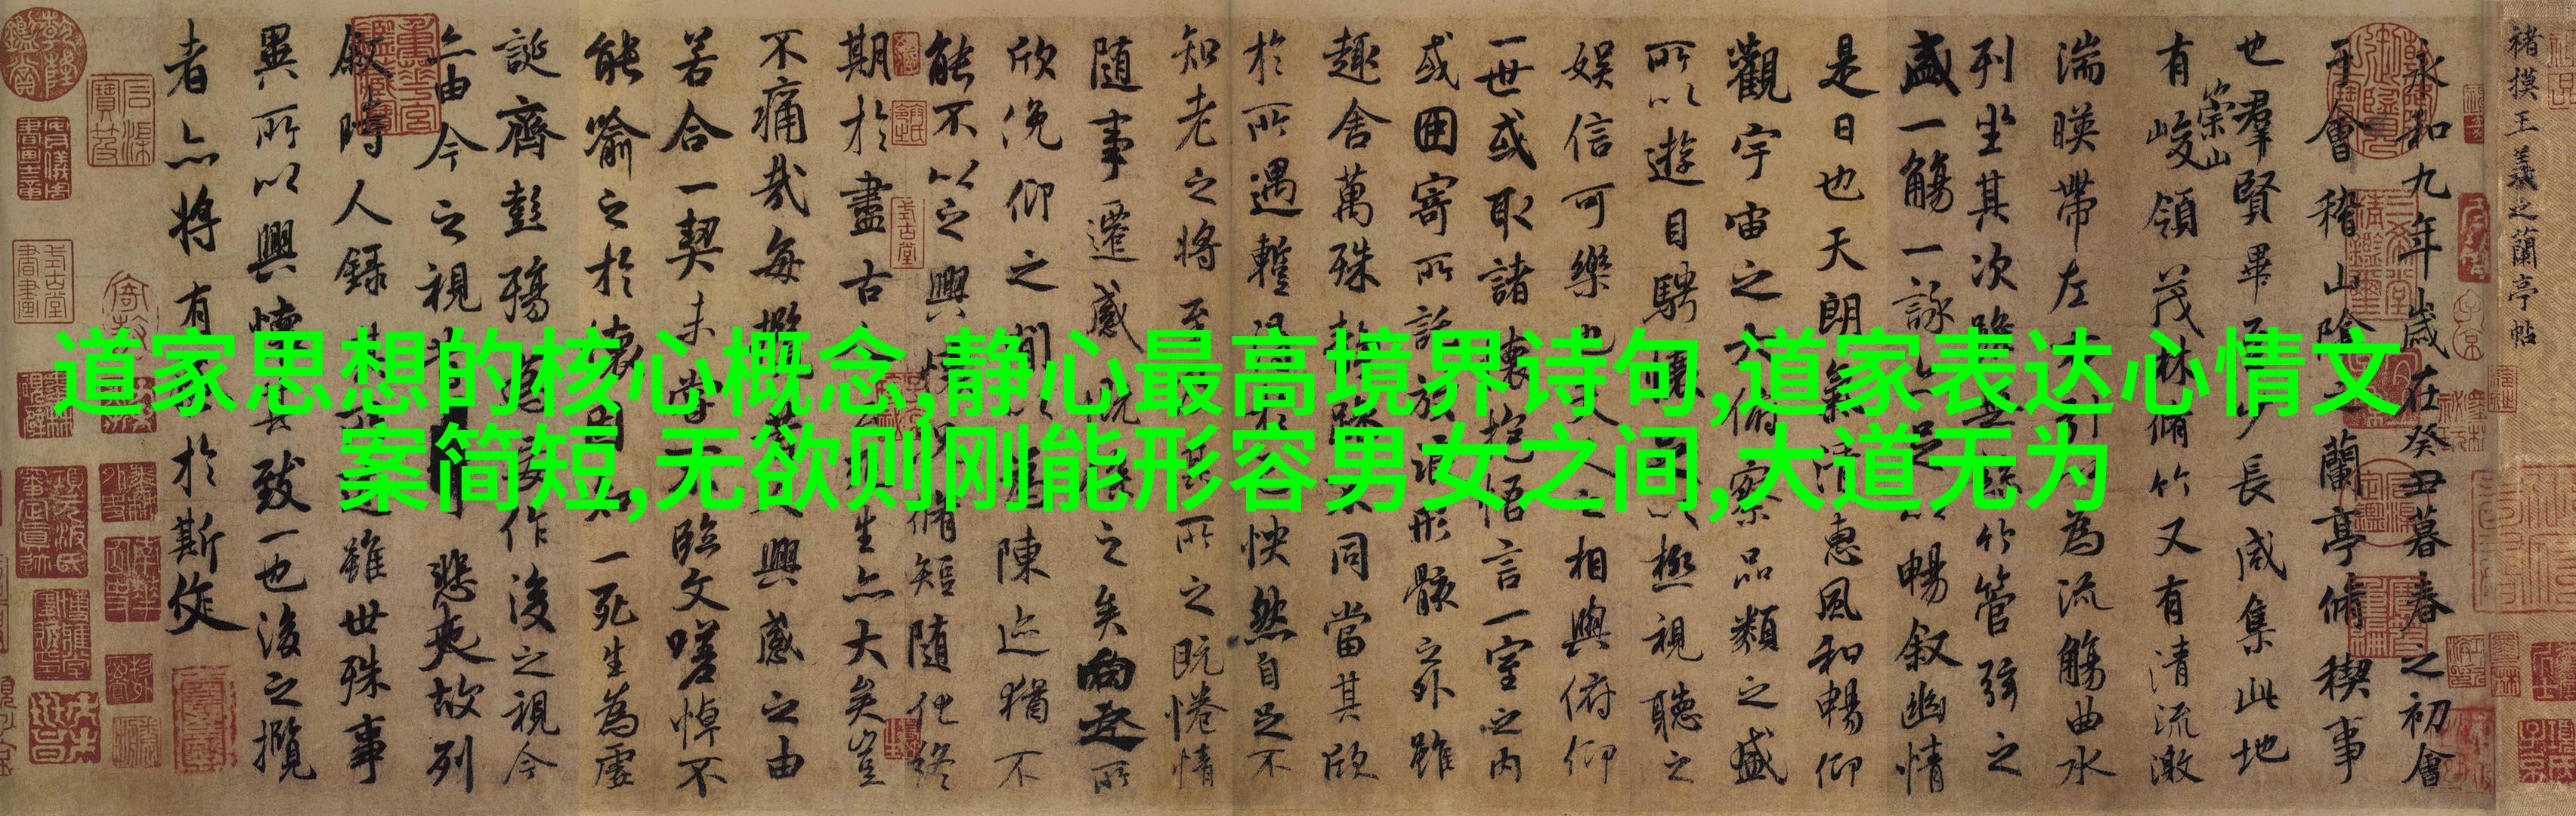 道家思想的核心概念,静心最高境界诗句,道家表达心情文
案简短,无欲则刚能形容男女之间,大道无为
褚摸王羲之蘭亭帖
永和九年歲在癸丑暮春之初會
于會稽山陰之蘭亭脩稧事
也羣賢畢至少長咸集此地
有崇山峻領茂林脩竹又有清流激
湍暎帶左右引以為流觴曲水
列坐其次雖無絲竹管弦之
盛一觴一詠亦足以暢叙幽情
是日也天朗氣清惠風和暢仰
觀宇宙之大俯察品類之盛
所以遊目騁懷足以極視聽之
娛信可樂也夫人之相與俯仰
一世或取諸懷抱悟言一室之內
或因寄所託放浪形骸之外雖
趣舍萬殊靜躁不同當其欣
於所遇蹔得於己怏然自足不
知老之將至及其所之既惓情
随事遷感慨係之矣向之所
欣俛仰之間以為陳迹猶不
能不以之興懷況脩短随化終
期於盡古人云死生亦大矣豈
不痛哉每攬昔人興感之由
若合一契未嘗臨文嗟悼不
能喻之於懷固知一死生為虛
誕齊彭殤為妄作後之視今
亦由今之視昔悲夫故列
叙時人錄其所述雖世殊事
異所以興懷其致一也後之攬
者亦將有感於斯文